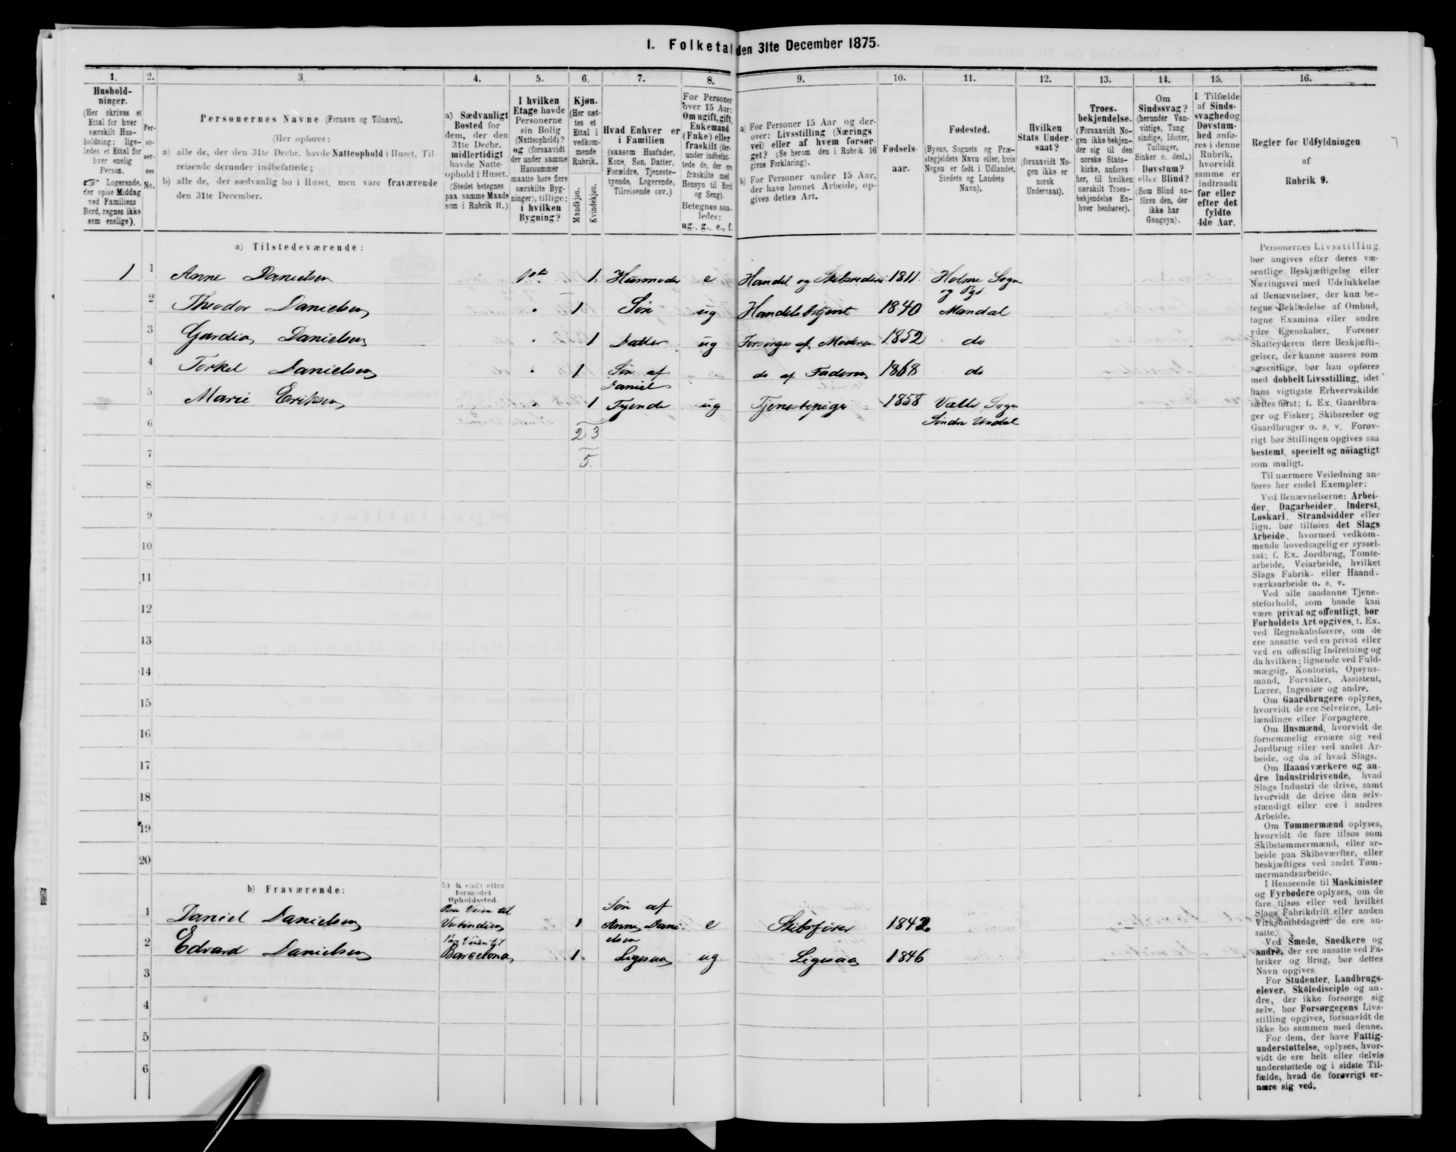 1. Folketal den 31te December 1875.
1. 2. 3. 4. 5. 6. 7. 8. 9. 10. 11. 12. 13. 14. 15. 16.
Hushold-
ninger.
(Her skrives et
Ettal for hver
særskilt Hus-
holdning; lige-
ledes et Ettal for
hver enslig
Person.
Logerende,
der spise Middag
ved Familiens
Bord, regnes ikke
som enslige).
Per-
soner-
nes
No.
Personernes Navne (Fornavn og Tilnavn).
(Her opføres:
a) alle de, der den 31te Decbr. havde Natteophold i Huset, Til-
reisende derunder indbefattede;
b) alle de, der sædvanlig bo i Huset, men vare fraværende
den 31te December.
a) Sædvanligt
Bosted for
dem, der den
31te Decbr.
midlertidigt
havde Natte-
ophold i Huset.
(Stedet betegnes
paa samme Maade
som i Rubrik 11.)
I hvilken
Etage havde
Personerne
sin Bolig
(Natteophold)?
og (forsaavidt
der under samme
Husnummer
maatte høre flere
særskilte Byg-
ninger), tillige:
i hvilken
Bygning?
Kjøn.
(Her sæt-
tes et
Ettal i
vedkom-
mende
Rubrik.
Mandkjøn.
Kvindekjøn.
Hvad Enhver er
i Familien
(saasom Husfader,
Kone, Søn, Datter,
Forældre, Tjeneste-
tyende, Logerende,
Tilreisende osv.)
For Personer
over 15 Aar:
Om ugift, gift,
Enkemand
(Enke) eller
fraskilt (der-
under indbefat-
tede de, der ere
fraskilte med
Hensyn til Bord
og Seng).
Betegnes saa-
ledes:
ug., g., e., f.
a) For Personer 15 Aar og der-
over: Livsstilling (Nærings
vei) eller af hvem forsør-
get? (Se herom den i Rubrik 16
givne Forklaring).
b) For Personer under 15 Aar,
der have lønnet Arbeide, op-
gives dettes Art.
Fødsels-
aar.
Fødested.
(Byens, Sognets og Præ-
stegjeldets Navn eller, hvis
Nogen er født i Udlandet,
Stedets og Landets
Navn).
Hvilken
Stats Under-
saat?
(forsaavidt No-
gen ikke er
norsk
Undersaat).
Troes-
bekjendelse.
(Forsaavidt No-
gen ikke bekjen-
der sig til den
norske Stats-
kirke, anføres
her, til hvilken
særskilt Troes-
bekjendelse En-
hver henhører).
Om
Sindssvag?
(herunder Van-
vittige, Tung
sindige, Idioter,
Tullinger,
Sinker o. desl.)
Døvstum?
eller Blind?
(Som Blind an-
føres den, der
ikke har
Gangsyn).
I Tilfælde
af Sinds-
svaghed og
Døvstum-
hed anfø-
res i denne
Rubrik,
hvorvidt
samme er
indtraadt
før eller
efter det
fyldte
4de Aar.
Regler for Udfyldningen
af
Rubrik 9.
a) Tilstedeværende:
1 1 Anne Danielsen 1ste. 1. Husmoder e Handel og Skibsrederi 1811 Holme Sogn og Pgd
2 Theodor Danielsen " 1 Søn ug Handelsbetjent 1840 Mandal
3 Danielsen " 1 Datter ug Forsørges af Moderen 1852 do
4 Torkel Danielsen " 1 Søn af Daniel do af Faderen 1868 do
5 Marie Eriksen 1 Tyende ug Tjenestepige 1858 Valle Sogn
Søndre Undal
6 2 3
7 5.
8
9
10
11
12
13
14
15
16
17
18
19
20
b) Fraværende:
b) Kjendt eller
formodet
Opholdssted.
1 Daniel Danielsen Paa Reise til Vestindien 1 Søn af Anne Danielsen e Skibsfører 1842
2 Edvard Danielsen Paa Reise til Barcelona 1 Ligesaa ug Ligesaa 1846
3
4
5
6
Personernes Livsstilling
bør angives efter deres væ-
sentlige Beskjæftigelse eller
Næringsvei med Udelukkelse
af Benævnelser, der kun be-
tegne Beklædelse af Ombud,
tagne Examina eller andre
ydre Egenskaber. Forener
Skatteyderen flere Beskjæfti-
gelser, der kunne ansees som
væsentlige, bør han opføres
med dobbelt Livsstilling, idet
hans vigtigste Erhvervskilde
sættes først; f. Ex. Gaardbru-
ger og Fisker; Skibsreder og
Gaardbruger o. s. v. Forøv-
rigt bør Stillingen opgives saa
bestemt, specielt og nöiagtigt
som muligt.
Til nærmere Veiledning an-
føres her endel Exempler:
Ved Benævnelserne: Arbei-
der, Dagarbeider, Inderst,
Løskarl, Strandsidder eller
lign. bør tilføies det Slags
Arbeide, hvormed vedkom-
mende hovedsagelig er syssel-
sat; f. Ex. Jordbrug, Tomte-
arbeide, Veiarbeide, hvilket
Slags Fabrik- eller Haand-
værksarbeide o. s. v.
Ved alle saadanne Tjene-
steforhold, som baade kan
være privat og offentligt, bør
Forholdets Art opgives, f. Ex.
ved Regnskabsførere, om de
ere ansatte ved en privat eller
ved en offentlig Indretning og
da hvilken; lignende ved Fuld-
mægtig, Kontorist, Opsyns-
mand, Forvalter, Assistent,
Lærer, Ingeniør og andre.
Om Gaardbrugere oplyses,
hvorvidt de ere Selveiere, Lei-
lændinge eller Forpagtere.
Om Husmænd, hvorvidt de
fornemmelig ernære sig ved
Jordbrug eller ved andet Ar-
beide, og da af hvad Slags.
Om Haandværkere og an-
dre Industridrivende, hvad
Slags Industri de drive, samt
hvorvidt de drive den selv-
stændigt eller ere i andres
Arbeide.
Om Tømmermænd oplyses,
hvorvidt de fare tilsøs som
Skibstømmermænd, eller ar-
beide paa Skibsværfter, eller
beskjæftiges ved andet Tøm-
mermandsarbeide.
I Henseende til Maskinister
og Fyrbødere oplyses, om de
fare tilsøs eller ved hvilket
Slags Fabrikdrift eller anden
Virksomhedsgreń de ere an-
satte.
Ved Smede, Snedkere og
andre, der ere ansatte ved Fa-
briker og Brug, bør dettes
Navn opgives.
For Studenter, Landbrugs-
elever, Skoledisciple og an-
dre, der ikke forsørge sig
selv, bør Forsørgerens Livs-
stilling opgives, forsaavidt de
ikke bo sammen med denne.
For dem, der have Fattig-
understøttelse, oplyses, hvor-
vidt de ere helt eller delvis
understøttede og i sidste Til-
fælde, hvad de forøvrigt er-
nære sig ved.